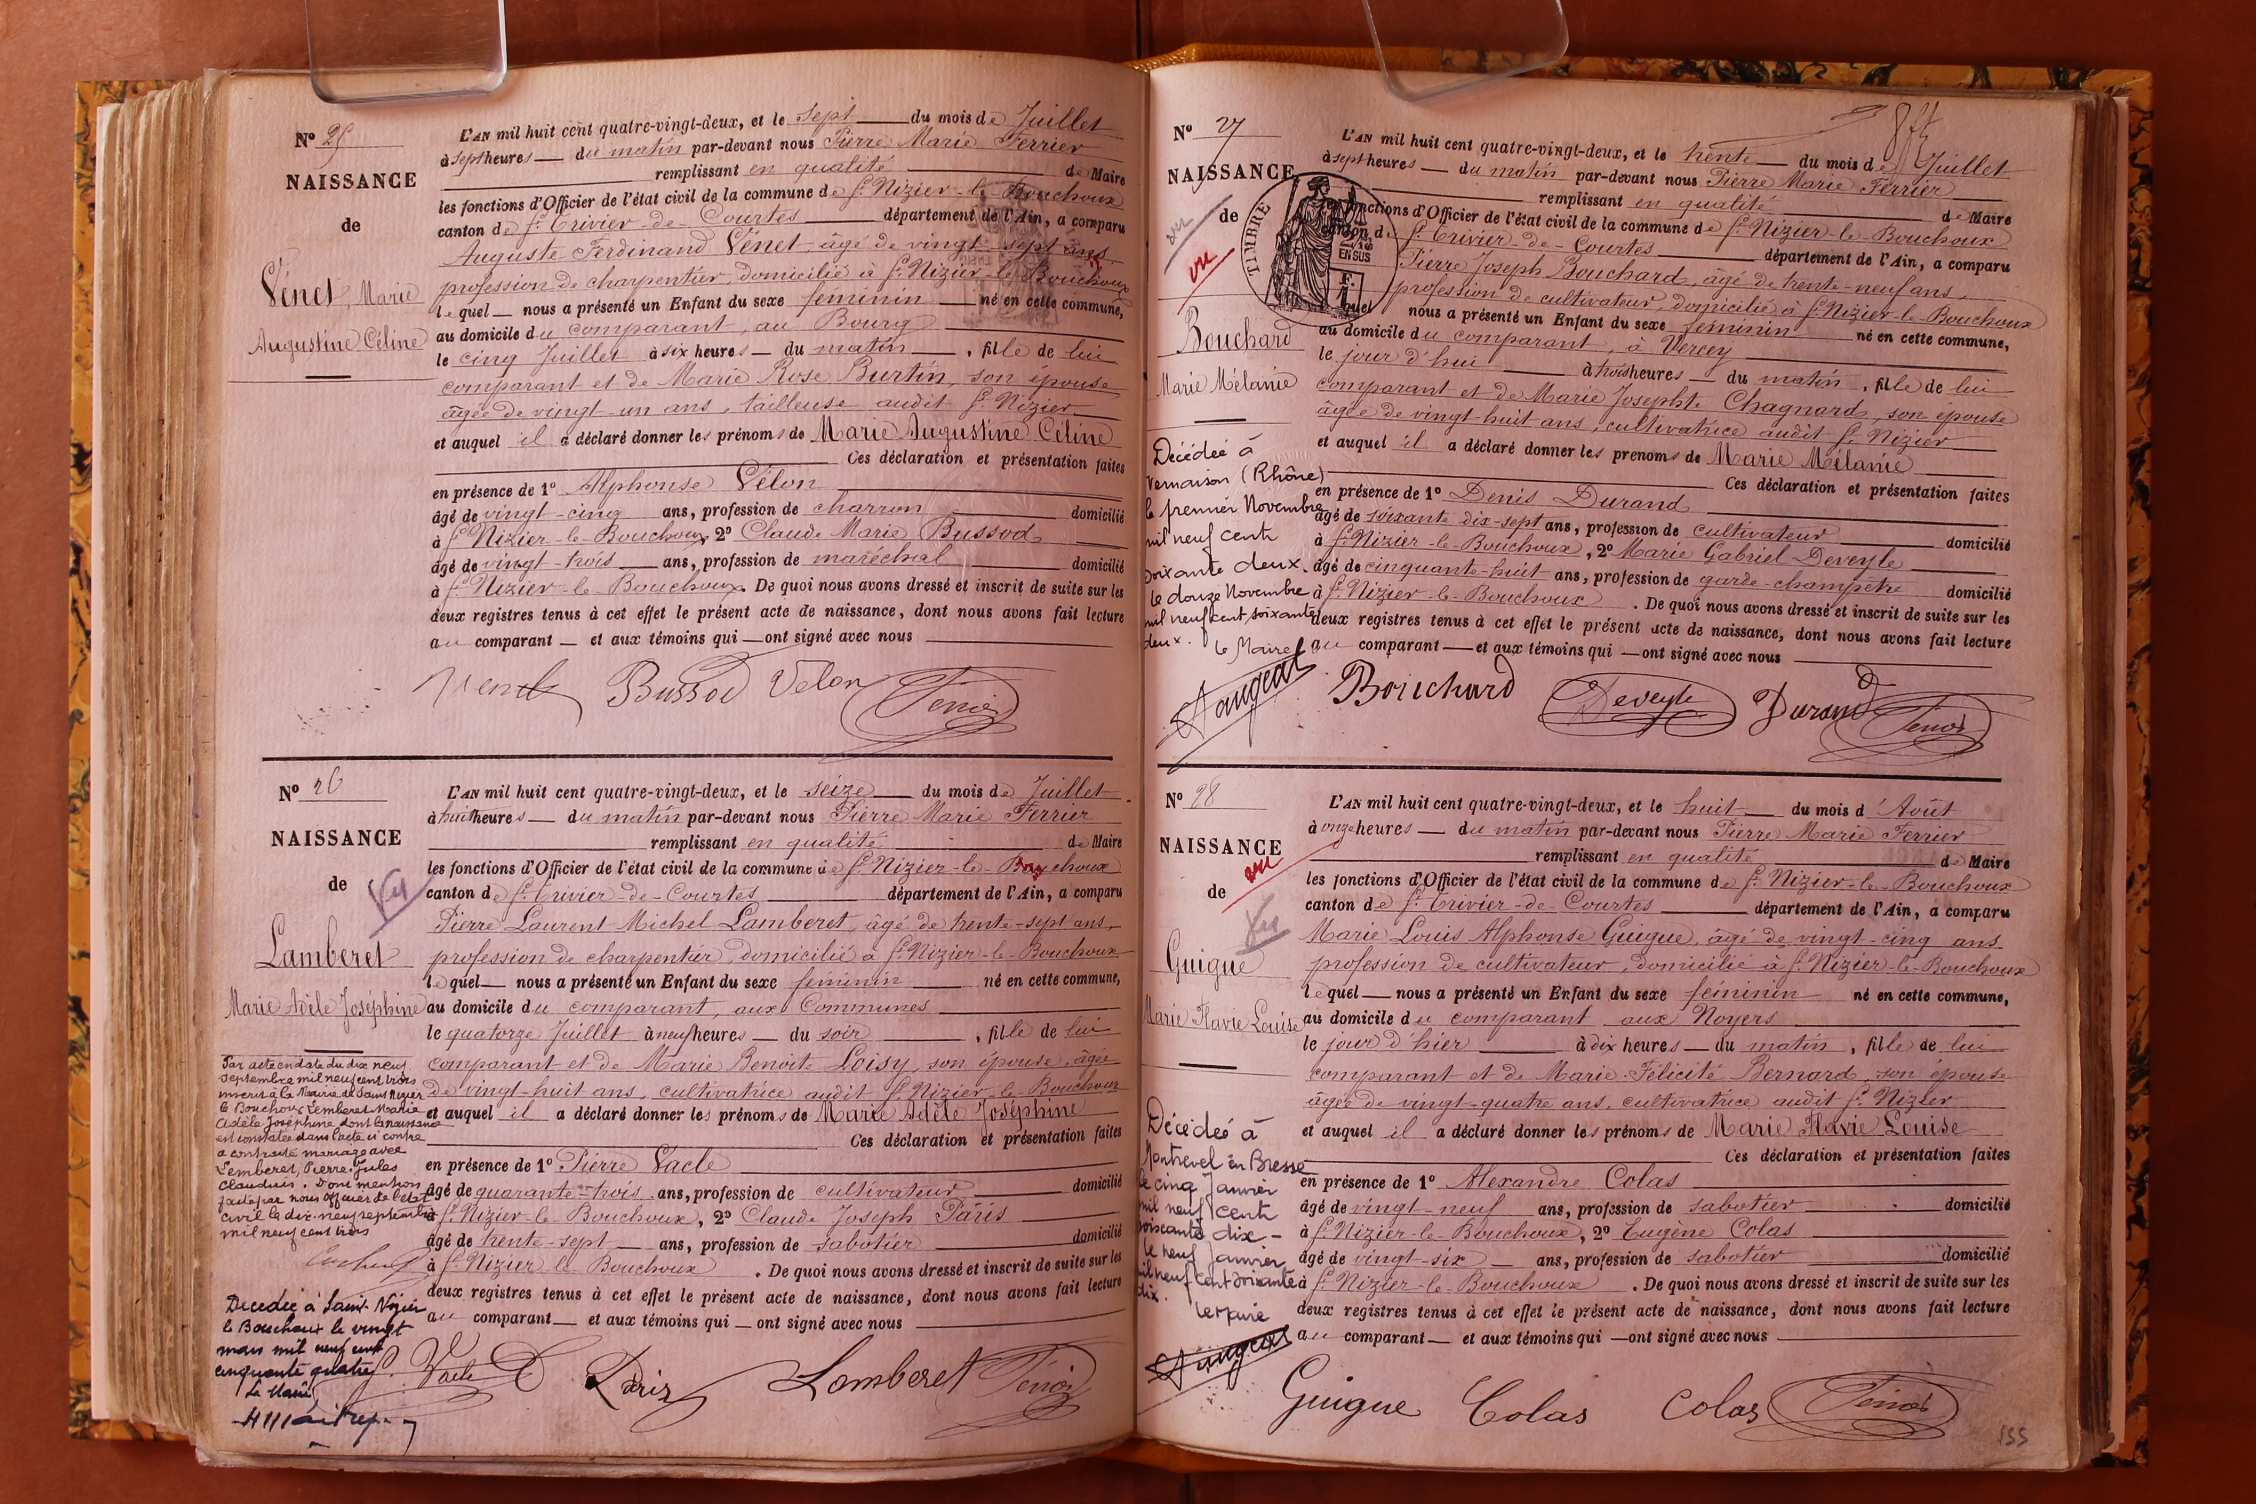 N° 25
NAISSANCE
de
Vénet, Marie
Augustine Céline
L'AN mil huit cent quatre-vingt-deux, et le sept du mois de Juillet
à sept heures du matin par-devant nous Pierre Marie Ferrier
remplissant en qualité de Maire
les fonctions d'Officier de l'état civil de la commune de St Nizier-le-Bouchoux
canton de St Trivier-de-Courtes département de l'Ain, a comparu
Auguste Ferdinand Vénet, âgé de vingt-sept ans,
profession de charpentier, domicilié à St Nizier-le-Bouchoux
lequel nous a présenté un Enfant du sexe féminin né en cette commune,
au domicile du comparant, au Bourg
le cinq Juillet à six heures du matin, fille de lui
comparant et de Marie Rose Burtin, son épouse
âgée de vingt-un ans, tailleuse audit St Nizier
et auquel il a déclaré donner les prénoms de Marie Augustine Céline
Ces déclaration et présentation faites
en présence de 1° Alphonse Vélon
âgé de vingt-cinq ans, profession de charron domicilié
à St Nizier-le-Bouchoux, 2° Claude Marie Bussod
âgé de vingt-trois ans, profession de maréchal domicilié
à St Nizier-le-Bouchoux. De quoi nous avons dressé et inscrit de suite sur les
deux registres tenus à cet effet le présent acte de naissance, dont nous avons fait lecture
au comparant et aux témoins qui ont signé avec nous
Bussod Velon
N° 26
NAISSANCE
de
Lamberet
Marie Adèle Joséphine
Par acte en date du dix neuf
septembre mil neuf cent trois
inscrit à la Mairie de Saint Nizier
le Bouchoux Lemberet Marie
Adèle Joséphine dont la naissance
est constatée dans l'acte ci contre
a contracté mariage avec
Lemberet, Pierre Jules
Claudius. Dont mention
faite par nous officier de l'état
civil le dix-neuf septembre
mil neuf cent trois
Décédée à Saint Nizier
le Bouchoux le vingt
mars mil neuf cent
cinquante quatre
Le Maire
L'AN mil huit cent quatre-vingt-deux, et le seize du mois de Juillet
à huit heures du matin par-devant nous Pierre Marie Ferrier
remplissant en qualité de Maire
les fonctions d'Officier de l'état civil de la commune de St Nizier-le-Bouchoux
canton de St Trivier-de-Courtes département de l'Ain, a comparu
Pierre Laurent Michel Lamberet, âgé de trente-sept ans,
profession de charpentier, domicilié à St Nizier-le-Bouchoux
lequel nous a présenté un Enfant du sexe féminin né en cette commune,
au domicile du comparant, aux Communes
le quatorze Juillet à neuf heures du soir, fille de lui
comparant et de Marie Benoite Loisy, son épouse, âgée
de vingt-huit ans, cultivatrice audit St Nizier-le-Bouchoux
et auquel il a déclaré donner les prénoms de Marie Adèle Joséphine
Ces déclaration et présentation faites
en présence de 1° Pierre Vacle
âgé de quarante-trois ans, profession de cultivateur domicilié
à St Nizier-le-Bouchoux, 2° Claude Joseph Pâris
âgé de trente-sept ans, profession de sabotier domicilié
à St Nizier le Bouchoux. De quoi nous avons dressé et inscrit de suite sur les
deux registres tenus à cet effet le présent acte de naissance, dont nous avons fait lecture
au comparant et aux témoins qui ont signé avec nous
Vacle Pariz Lamberet
N° 27
NAISSANCE
de
vu
vu
Bouchard
Marie Mélanie
Décédée à
Vernaison (Rhône)
le premier Novembre
mil neuf cent
soixante deux.
le douze Novembre
mil neuf cent soixante
deux.
Le Maire
Augeat
TIMBRE
EN SUS
L'AN mil huit cent quatre-vingt-deux, et le trente du mois de Juillet
à sept heures du matin par-devant nous Pierre Marie Ferrier
remplissant en qualité de Maire
les fonctions d'Officier de l'état civil de la commune de St Nizier-le-Bouchoux
canton de St Trivier-de-Courtes département de l'Ain, a comparu
Pierre Joseph Bouchard, âgé de trente-neuf ans,
profession de cultivateur, domicilié à St Nizier-le-Bouchoux
quel nous a présenté un Enfant du sexe féminin né en cette commune,
au domicile du comparant, à Vercey
le jour d'hui à trois heures du matin, fille de lui
comparant et de Marie Josephte Chagnard, son épouse
âgée de vingt-huit ans, cultivatrice audit St Nizier
et auquel il a déclaré donner les prénoms de Marie Mélanie
Ces déclaration et présentation faites
en présence de 1° Denis Durand
âgé de soixante dix-sept ans, profession de cultivateur domicilié
à St Nizier-le-Bouchoux, 2° Marie Gabriel Deveyle
âgé de cinquante-huit ans, profession de garde-champêtre domicilié
à St Nizier-le-Bouchoux. De quoi nous avons dressé et inscrit de suite sur les
deux registres tenus à cet effet le présent acte de naissance, dont nous avons fait lecture
au comparant et aux témoins qui ont signé avec nous
Bouchard Deveyle Durand
N° 28
NAISSANCE
de
vu
Guigue
Marie Flavie Louise
Décédée à
Montrevel en Bresse
le cinq Janvier
mil neuf cent
soixante dix -
le neuf Janvier
mil neuf cent soixante
dix.
Le Maire
Augeat
L'AN mil huit cent quatre-vingt-deux, et le huit du mois d'Août
à onze heures du matin par-devant nous Pierre Marie Ferrier
remplissant en qualité de Maire
les fonctions d'Officier de l'état civil de la commune de St Nizier-le-Bouchoux
canton de St Trivier-de-Courtes département de l'Ain, a comparu
Marie Louis Alphonse Guigue, âgé de vingt-cinq ans
profession de cultivateur, domicilié à St Nizier-le-Bouchoux
lequel nous a présenté un Enfant du sexe féminin né en cette commune,
au domicile du comparant aux Noyers
le jour d'hier à dix heures du matin, fille de lui
comparant et de Marie Félicité Bernard son épouse
âgée de vingt-quatre ans, cultivatrice audit St Nizier
et auquel il a déclaré donner les prénoms de Marie Flavie Louise
Ces déclaration et présentation faites
en présence de 1° Alexandre Colas
âgé de vingt-neuf ans, profession de sabotier domicilié
à St Nizier-le-Bouchoux, 2° Eugène Colas
âgé de vingt-six ans, profession de sabotier domicilié
à St Nizier-le-Bouchoux. De quoi nous avons dressé et inscrit de suite sur les
deux registres tenus à cet effet le présent acte de naissance, dont nous avons fait lecture
au comparant et aux témoins qui ont signé avec nous
Guigue Colas Colas
155